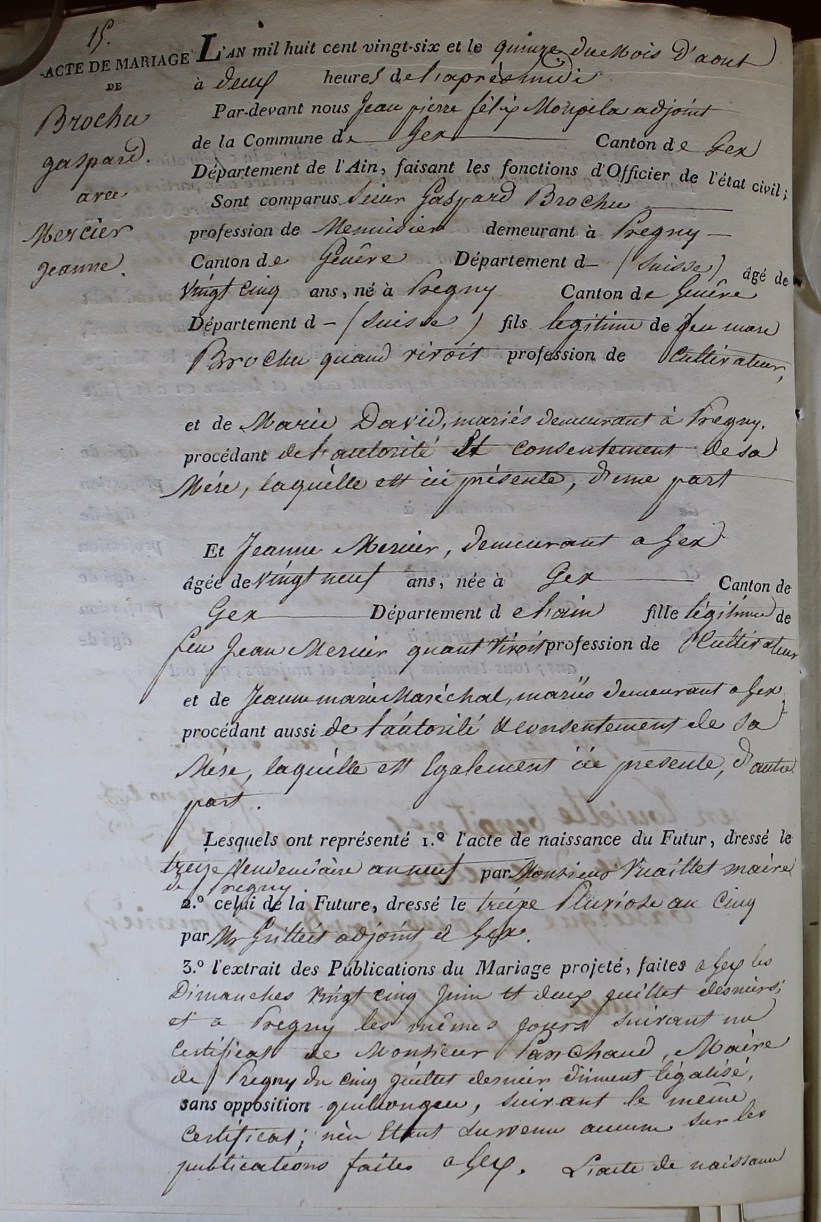 15.
ACTE DE MARIAGE
DE
Brochu
gaspard.
avec
Mercier
Jeanne.
L'AN mil huit cent vingt-six et le quinze du Mois D'aout
à deux heures de l'aprèsmidi
Par-devant nous Jean pierre félix adjoint
de la Commune de Gex Canton de Gex
Département de l'Ain, faisant les fonctions d'Officier de l'état civil;
Sont comparus Sieur Gaspard Brochu
profession de Menuisier demeurant à Pregny
Canton de Genêve Département d (Suisse) âgé de
vingt cinq ans, né à Pregny Canton de Genêve
Département d (Suisse) fils legitime de feu marc
Brochu quand vivoit profession de Cultivateur,
et de Marie David, mariés demeurant à Pregny.
procédant de l'autorité Et consentement de sa
Mère, laquelle est ici présente, d'une part
Et Jeanne Mercier, demeurant a Gex
âgée de vingt neuf ans, née à Gex Canton de
Gex Département de l'ain fille légitime de
feu Jean Mercier quant vivoit profession de Cultivateur
et de Jeanne marie Maréchal, mariés demeurant a Gex,
procédant aussi de l'autorité & consentement de sa
Mère, laquelle est Egalement ici presente, d'autre
part.
Lesquels ont représenté 1.º l'acte de naissance du Futur, dressé le
treize Vendemiaire an neuf par Monsieur Vuaillet maire
de Pregny.
2.º celui de la Future, dressé le treize Pluviose an Cinq
par Mr adjoint à Gex.
3.º l'extrait des Publications du Mariage projeté, faites a Gex les
Dimanches Vingt Cinq Juin et deux Juillet derniers;
et a Pregny les mêmes jours suivant un
Certificat de Monsieur Panchaud, Maire
de Pregny du Cinq Juillet dernier dûment légalisé,
sans opposition quelconque, suivant le même
Certificat; n'en Etant survenu aucune sur les
publications faites a Gex. L'acte de naissance